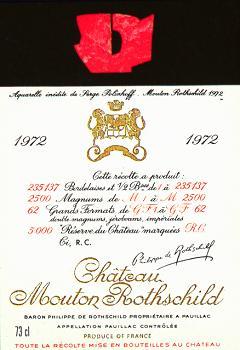 Aquarelle inédite de Serge Poliakoff - Mouton Rothschild 1972
1972 1972
Cette récolte a produit :
235137 Bordelaises et 1/2 Btes de 1 à 235137
2500 Magnums de M 1 à M 2500
62 Grands Formats de G F 1 à G F 62
double magnums, jéroboams, impériales
5000 "Réserve du Château" marquées R.C.
Ci, R.C.
Philippe de Rothschild
Château
Mouton Rothschild
BARON PHILIPPE DE ROTHSCHILD PROPRIÉTAIRE A PAUILLAC
APPELLATION PAUILLAC CONTRÔLÉE
73 cl PRODUCE OF FRANCE
TOUTE LA RÉCOLTE MISE EN BOUTEILLES AU CHÂTEAU